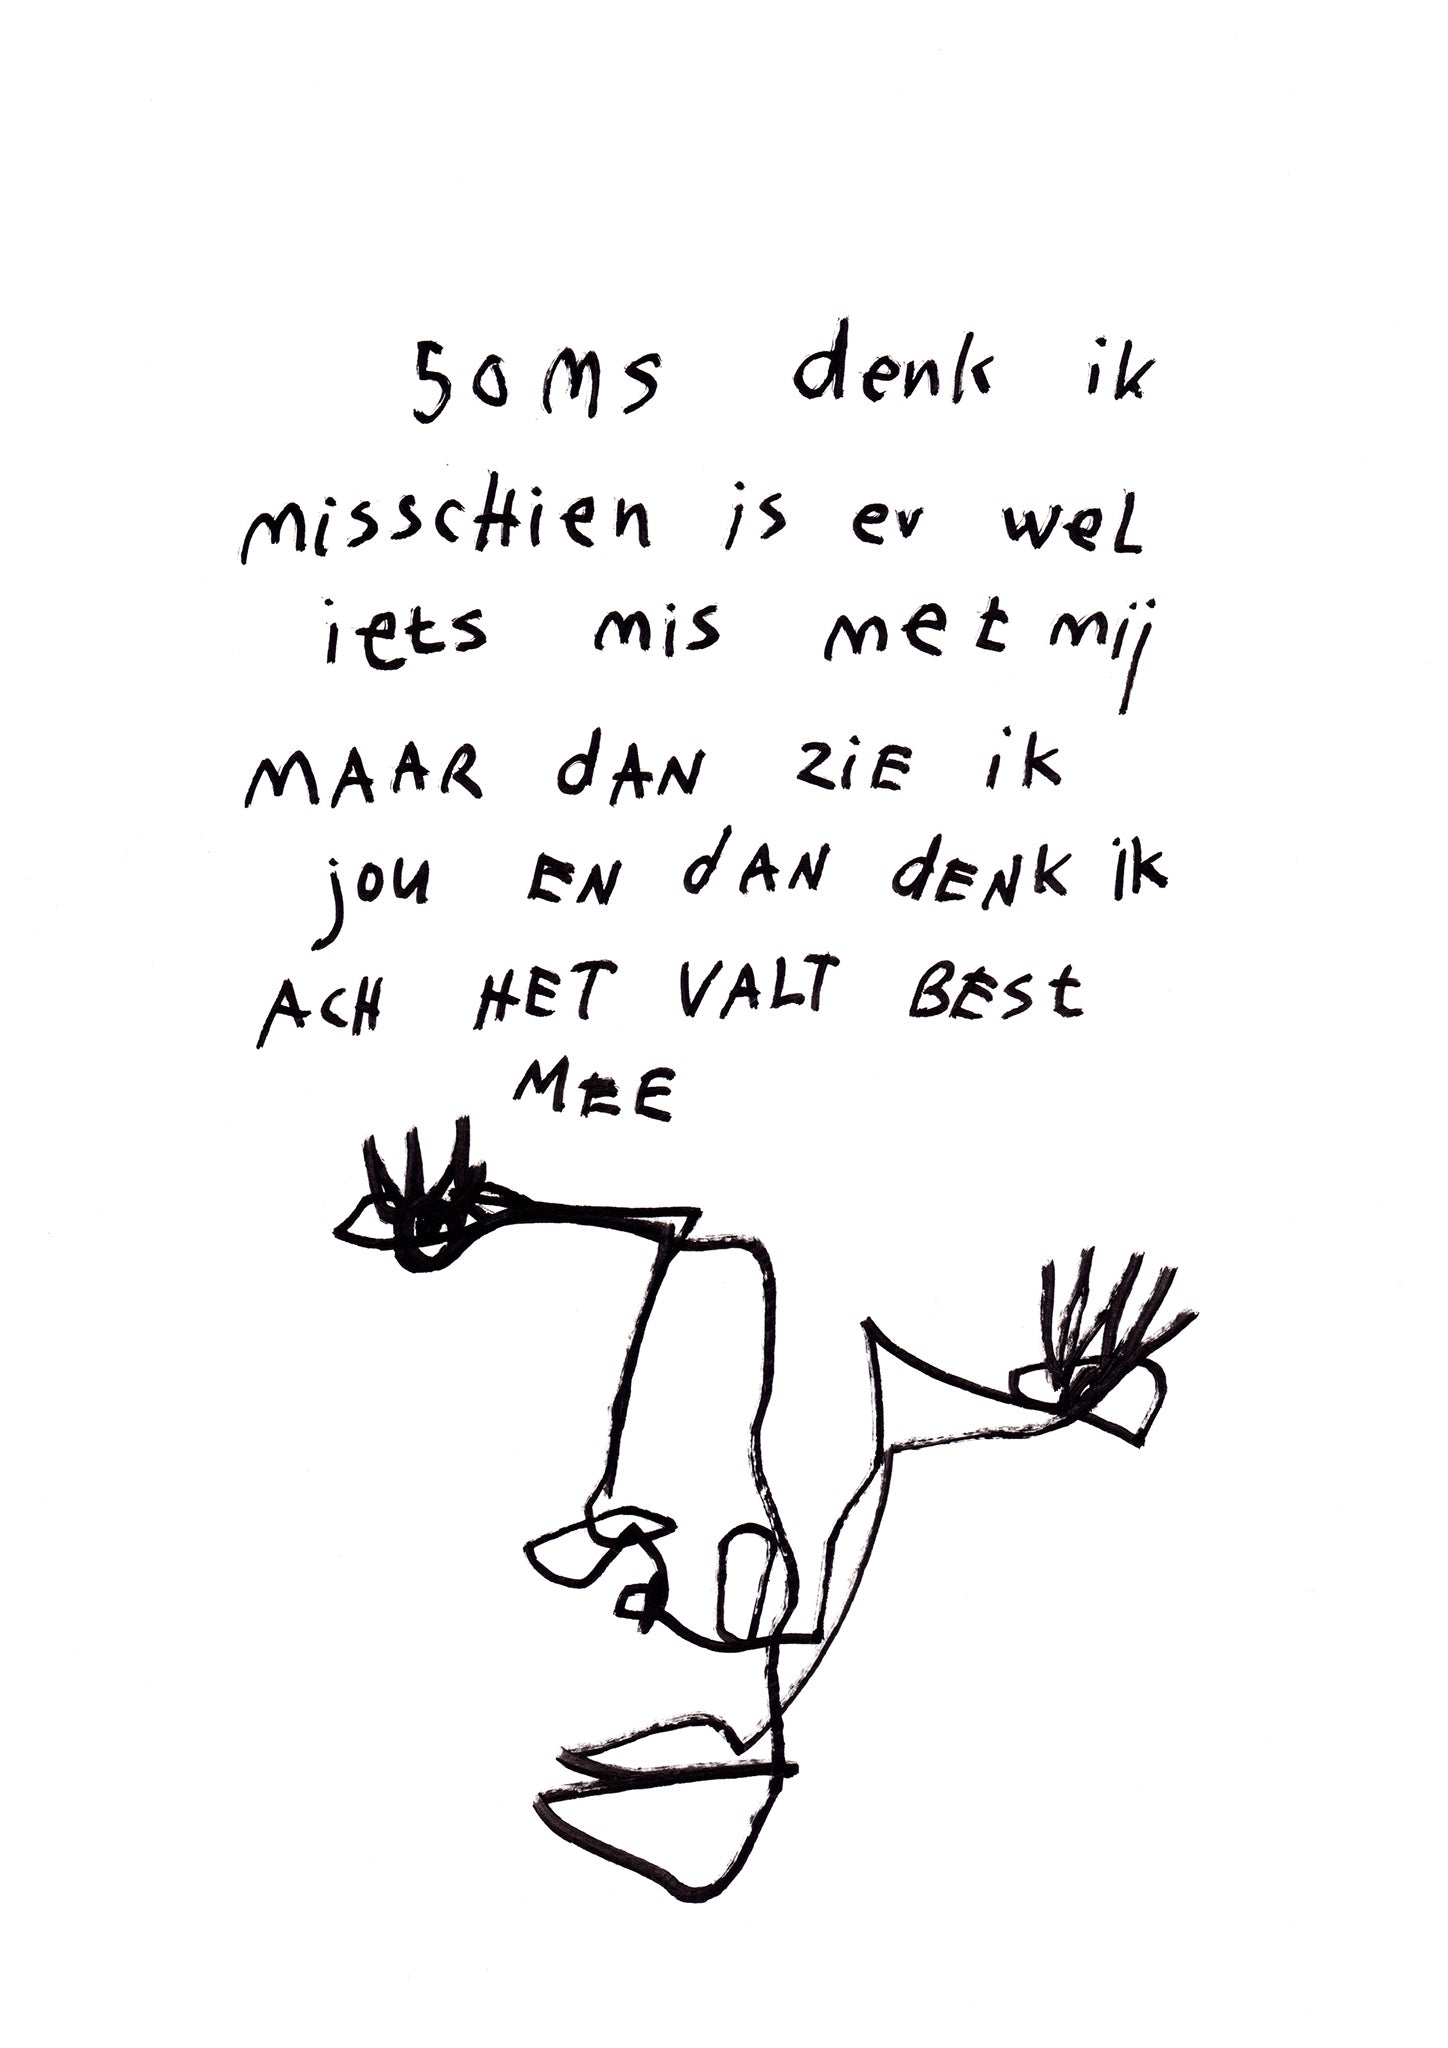 soms denk ik
misschien is er wel
iets mis met mij
MAAR dAN ziE ik
jou EN dAN dENK ik
ACH HET VALT BESt
MEE